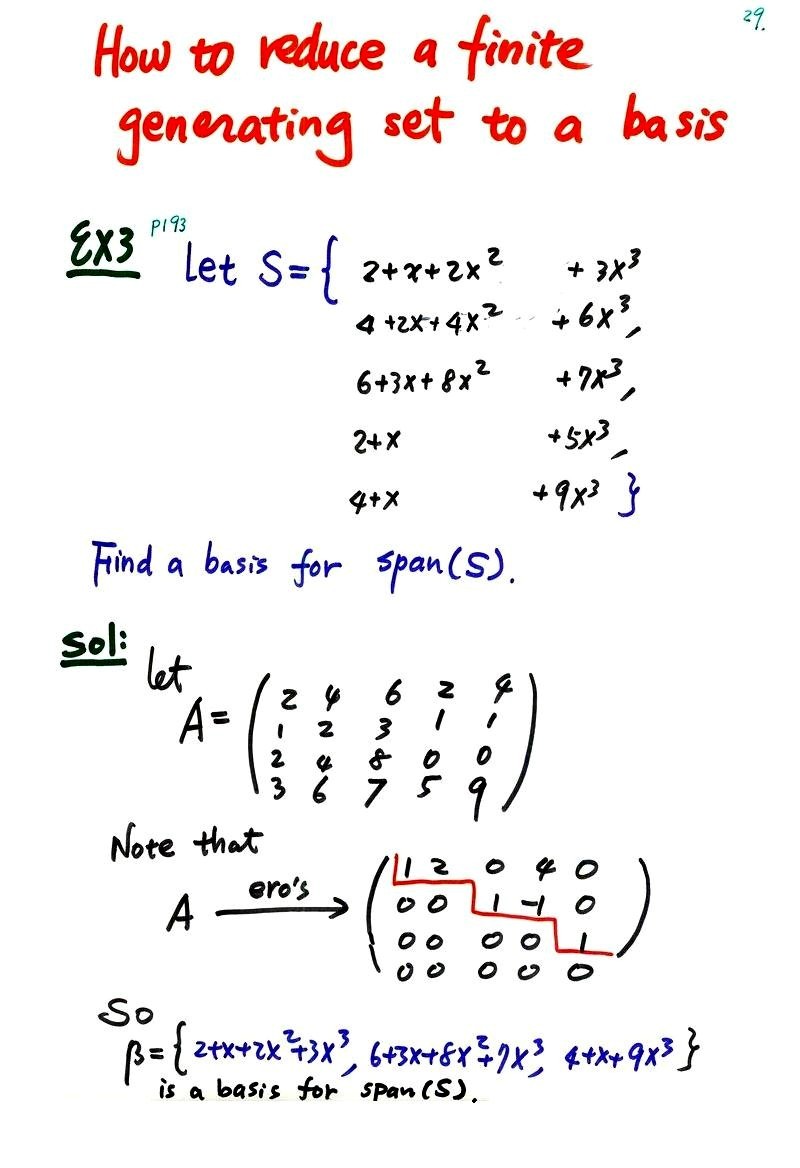 29.
How to reduce a finite
generating set to a basis
Ex3 P193
Let S={ 2+x+2x² + 3x³
4+2x+4x² + 6x³,
6+3x+8x² +7x³,
2+x +5x³,
4+x +9x³ }
Find a basis for span(S).
Sol:
let
A= ( 2 4 6 2 4
1 2 3 1 1
2 4 8 0 0
3 6 7 5 9 )
Note that
A ero's → ( 1 2 0 4 0
0 0 1 -1 0
0 0 0 0 1
0 0 0 0 0 )
So
β={ 2+x+2x²+3x³, 6+3x+8x²+7x³, 4+x+9x³ }
is a basis for span(S).